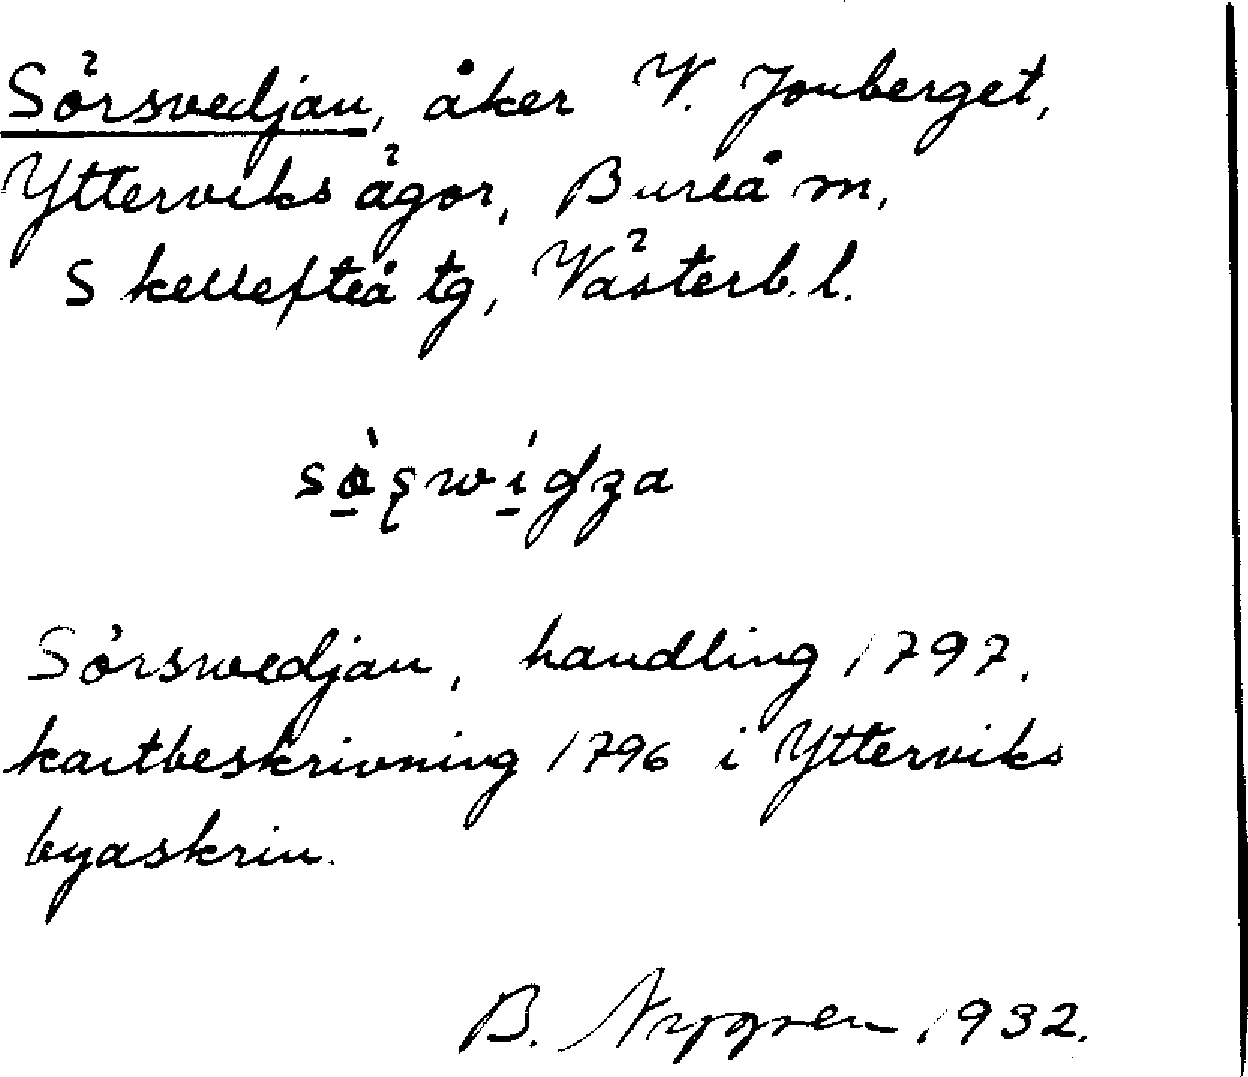 Sörsvedjan, åker V. Jonberget,
Ytterviks ägor, Bureå m,
Skellefteå tg, Västerb. l.
Sörswedjan, handling 1797.
kartbeskrivning 1796 i Ytterviks
byaskrin.
B. Nygren 1932.